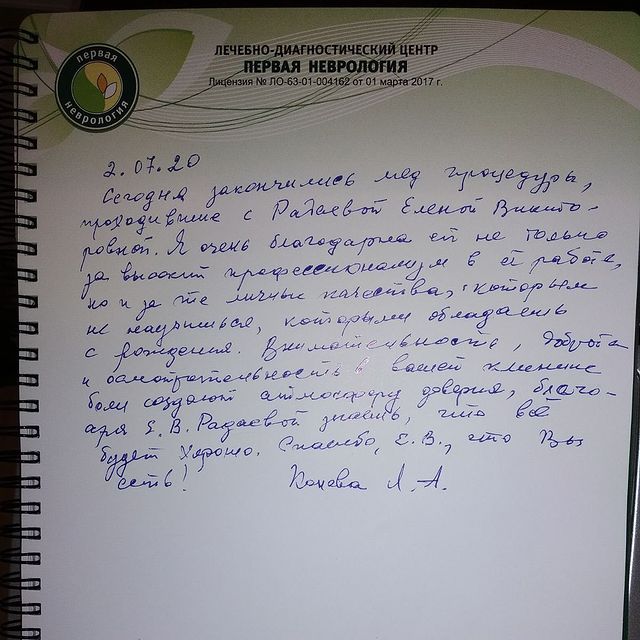 первая
неврология
ЛЕЧЕБНО-ДИАГНОСТИЧЕСКИЙ ЦЕНТР
ПЕРВАЯ НЕВРОЛОГИЯ
Лицензия № ЛО-63-01-004162 от 01 марта 2017 г.
2.07.20
Сегодня закончились мед процедуры,
проходившие с Радаевой Еленой Викто-
ровной. Я очень благодарна ей не только
за высокий профессионализм в её работе,
но и за те личные качества, которым
не научишься, которыми обладаешь
с рождения. Внимательность, доброта
и в вашей клинике
создают атмосферу доверия, благо-
аря Е.В. Радаевой знаешь, что всё
будет хорошо. Спасибо, Е.В., что Вы
есть! Л.А.